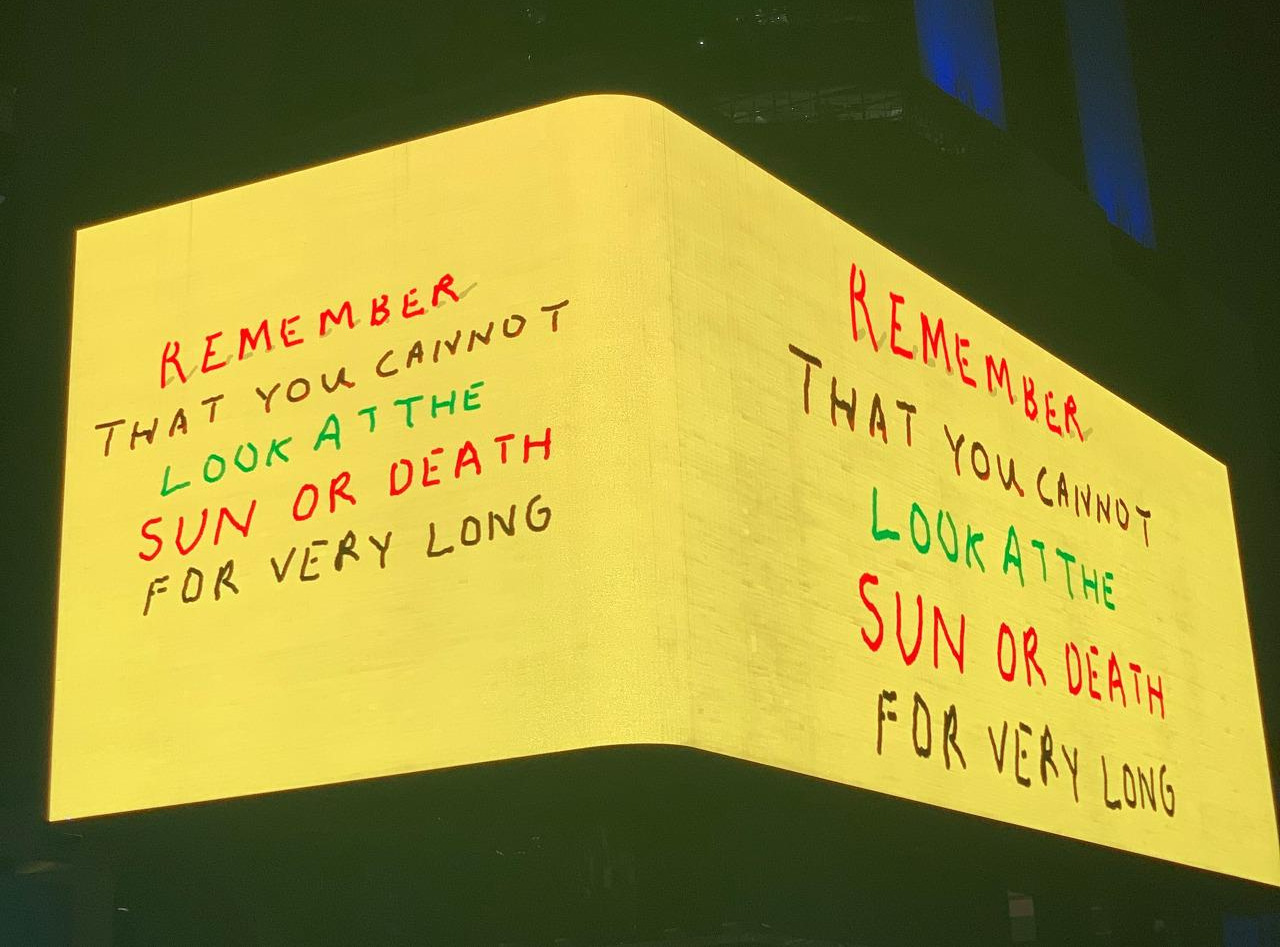 REMEMBER
THAT YOU CANNOT
LOOK AT THE
SUN OR DEATH
FOR VERY LONG
REMEMBER
THAT YOU CANNOT
LOOK AT THE
SUN OR DEATH
FOR VERY LONG